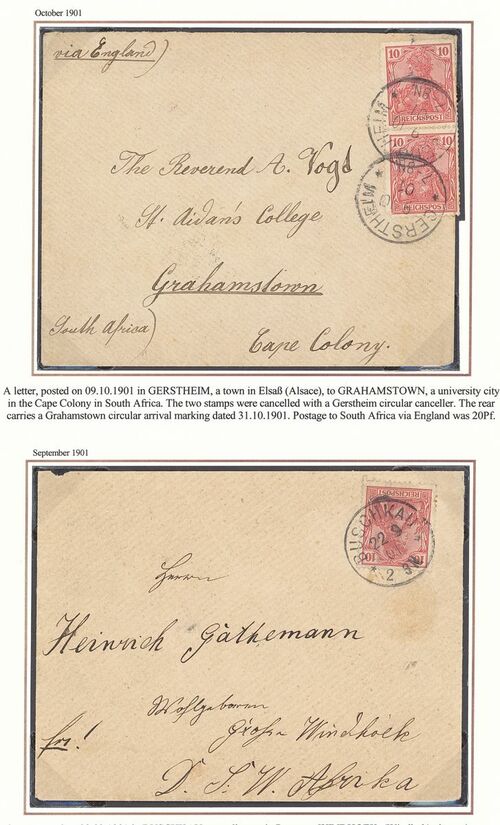 October 1901
via England)
10 10
REICHSPOST
10 10
REICHSPOST
GERSTHEIM
The Reverend A. Vogt
St. Aidan's College
Grahamstown
South Africa)
Cape Colony.
A letter, posted on 09.10.1901 in GERSTHEIM, a town in Elsaß (Alsace), to GRAHAMSTOWN, a university city
in the Cape Colony in South Africa. The two stamps were cancelled with a Gerstheim circular canceller. The rear
carries a Grahamstown circular arrival marking dated 31.10.1901. Postage to South Africa via England was 20Pf.
September 1901
REICHSPOST
10 10
22 9
Herrn
Heinrich Gathemann
Wohlgeboren
Gross Windhoek
fr!
D. S. W. Afrika